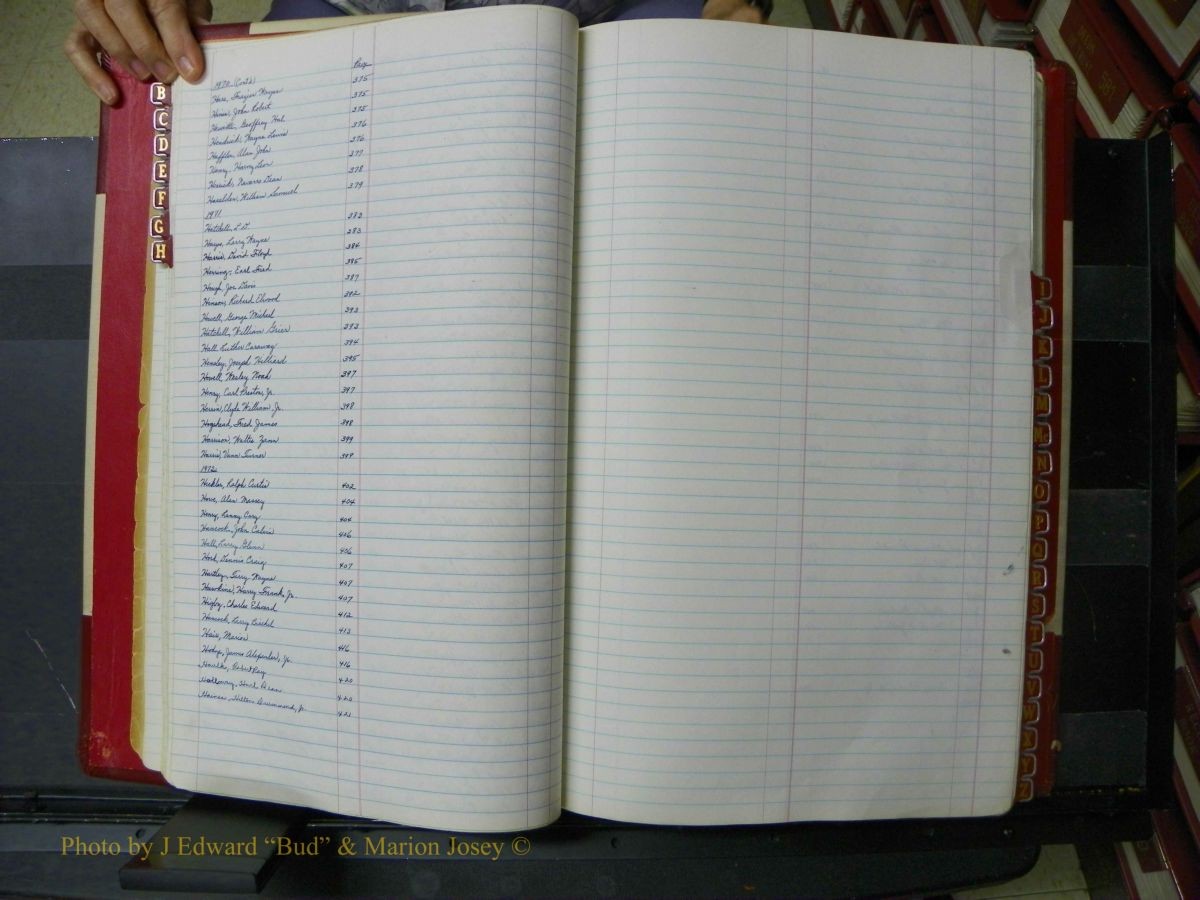 Page
1970 (Cont'd) 375
Hare, Frazier Wayne 375
John Robert 375
Geoffrey 376
Hendrick, Wayne Lewis 376
Heffler, Alan John 377
Henry, Harvey Leon 378
Herrick, Navarre Dean 379
Haselden, William Samuel
1971
Hatchell, L D 383
Hays, Larry Wayne 383
Harris, David Floyd 384
Herring, Earl Fred 385
Hough, Joe Davis 387
Henson, Richard Elwood 392
Howell, George Michael 393
Hatchell, William Grier 393
Hall, Luther Caraway 394
Hensley, Joseph Hilliard 395
Howell, Wesley Noah 397
Henry, Carl Preston, Jr. 397
Herrin, Clyde William, Jr. 398
Hogshead, Fred James 398
Harrison, Walter 399
Harris, Vann Turner 399
1972
Heckler, Ralph Curtis 402
Howe, Alan Massey 404
Henry, Danny Cary 404
Hancock, John Calvin 406
Hall, Larry Glenn 406
Hord, Dennis Craig 407
Hartley, Terry Wayne 407
Hawkins, Harry Frank, Jr. 407
Higby, Charles Edward 412
Hancock, Larry 413
Hair, Marion 416
Hodge, James Alexander, Jr. 416
Robert Ray 420
Holloway, Dean 420
Haines, Milton Drummond, Jr. 421
B
C
D
E
F
G
H
I
J
K
L
M
Mc
N
O
P
Q
R
S
T
U
V
W
X
Y
Z
Photo by J Edward “Bud” & Marion Josey ©